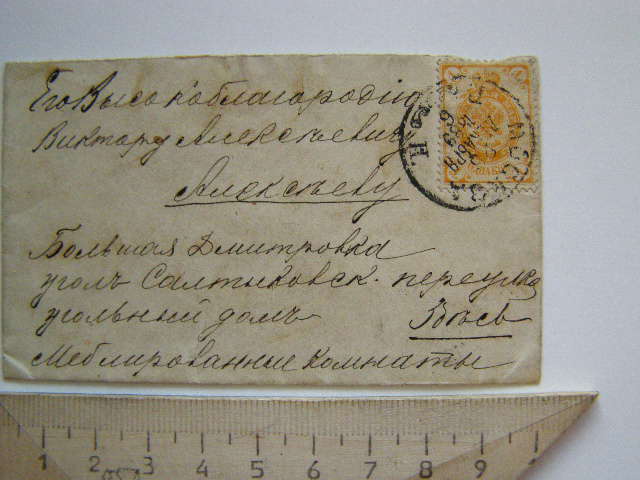 Его Высокоблагородію
Виктору Алексѣевичу
Алексѣеву
Большая Дмитровка
уголъ Салтыковск. переулка
угольный домъ Здѣсь
Меблированные комнаты
МОСКВА
1 2 3 4 5 6 7 8 9 1